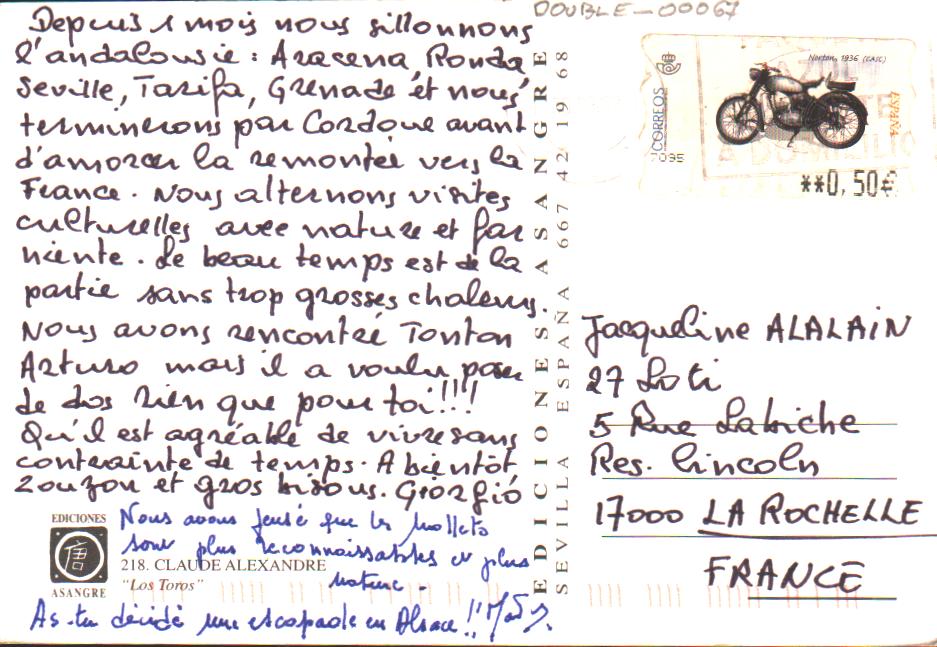 DOUBLE-00067
Depuis 1 mois nous sillonnons
l'andalousie : Aracena, Ronda
Seville, Tarifa, Grenade et nous
terminerons par Cordoue avant
d'amorcer la remontée vers la
France. Nous alternons visites
culturelles avec nature et far
niente. Le beau temps est de la
partie sans trop grosses chaleurs.
Nous avons rencontré Tonton
Arturo mais il a voulu poser
de dos rien que pour toi!!!
Qu'il est agréable de vivre sans
contrainte de temps. A bientôt
Zouzon et gros bisous. Giorgió
Nous avons pensé que les mollets
sont plus reconnaissables et plus
nature.
As-tu décidé une escapade en Alsace!!
EDICIONES
ASANGRE
218. CLAUDE ALEXANDRE
"Los Toros"
EDICIONES ASANGRE
SEVILLA ESPAÑA 667 42 19 68
Norton, 1936 (CASC)
CORREOS
ESPAÑA
7095
A DOMICILIO
**0,50€
Jacqueline ALALAIN
27 Loti
5 Rue Labiche
Res. Lincoln
17000 LA ROCHELLE
FRANCE